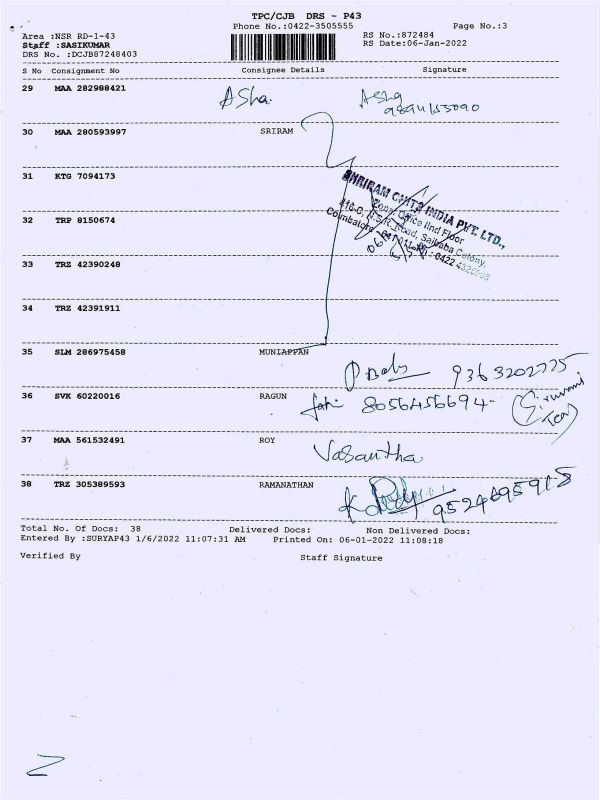 TPC/CJB DRS - P43
Phone No.:0422-3505555
Page No.:3
Area :NSR RD-1-43
RS No.:872484
Staff :SASIKUMAR
RS Date:06-Jan-2022
DRS No. :DCJB87248403
S No Consignment No Consignee Details Signature
29 MAA 282988421 Asha Asha
30 MAA 280593997 SRIRAM
31 KTG 7094173
SHRIRAM CHITS INDIA PVT. LTD.,
Zonal Office IInd Floor
Road, Saibaba Colony,
Coimbatore
32 TRP 8150674
33 TRZ 42390248
34 TRZ 42391911
35 SLM 286975458 MUNIAPPAN
9363202775
36 SVK 60220016 RAGUN 8056456694
37 MAA 561532491 ROY Vasantha
38 TRZ 305389593 RAMANATHAN
9524695918
Total No. Of Docs: 38 Delivered Docs: Non Delivered Docs:
Entered By :SURYAP43 1/6/2022 11:07:31 AM Printed On: 06-01-2022 11:08:18
Verified By Staff Signature